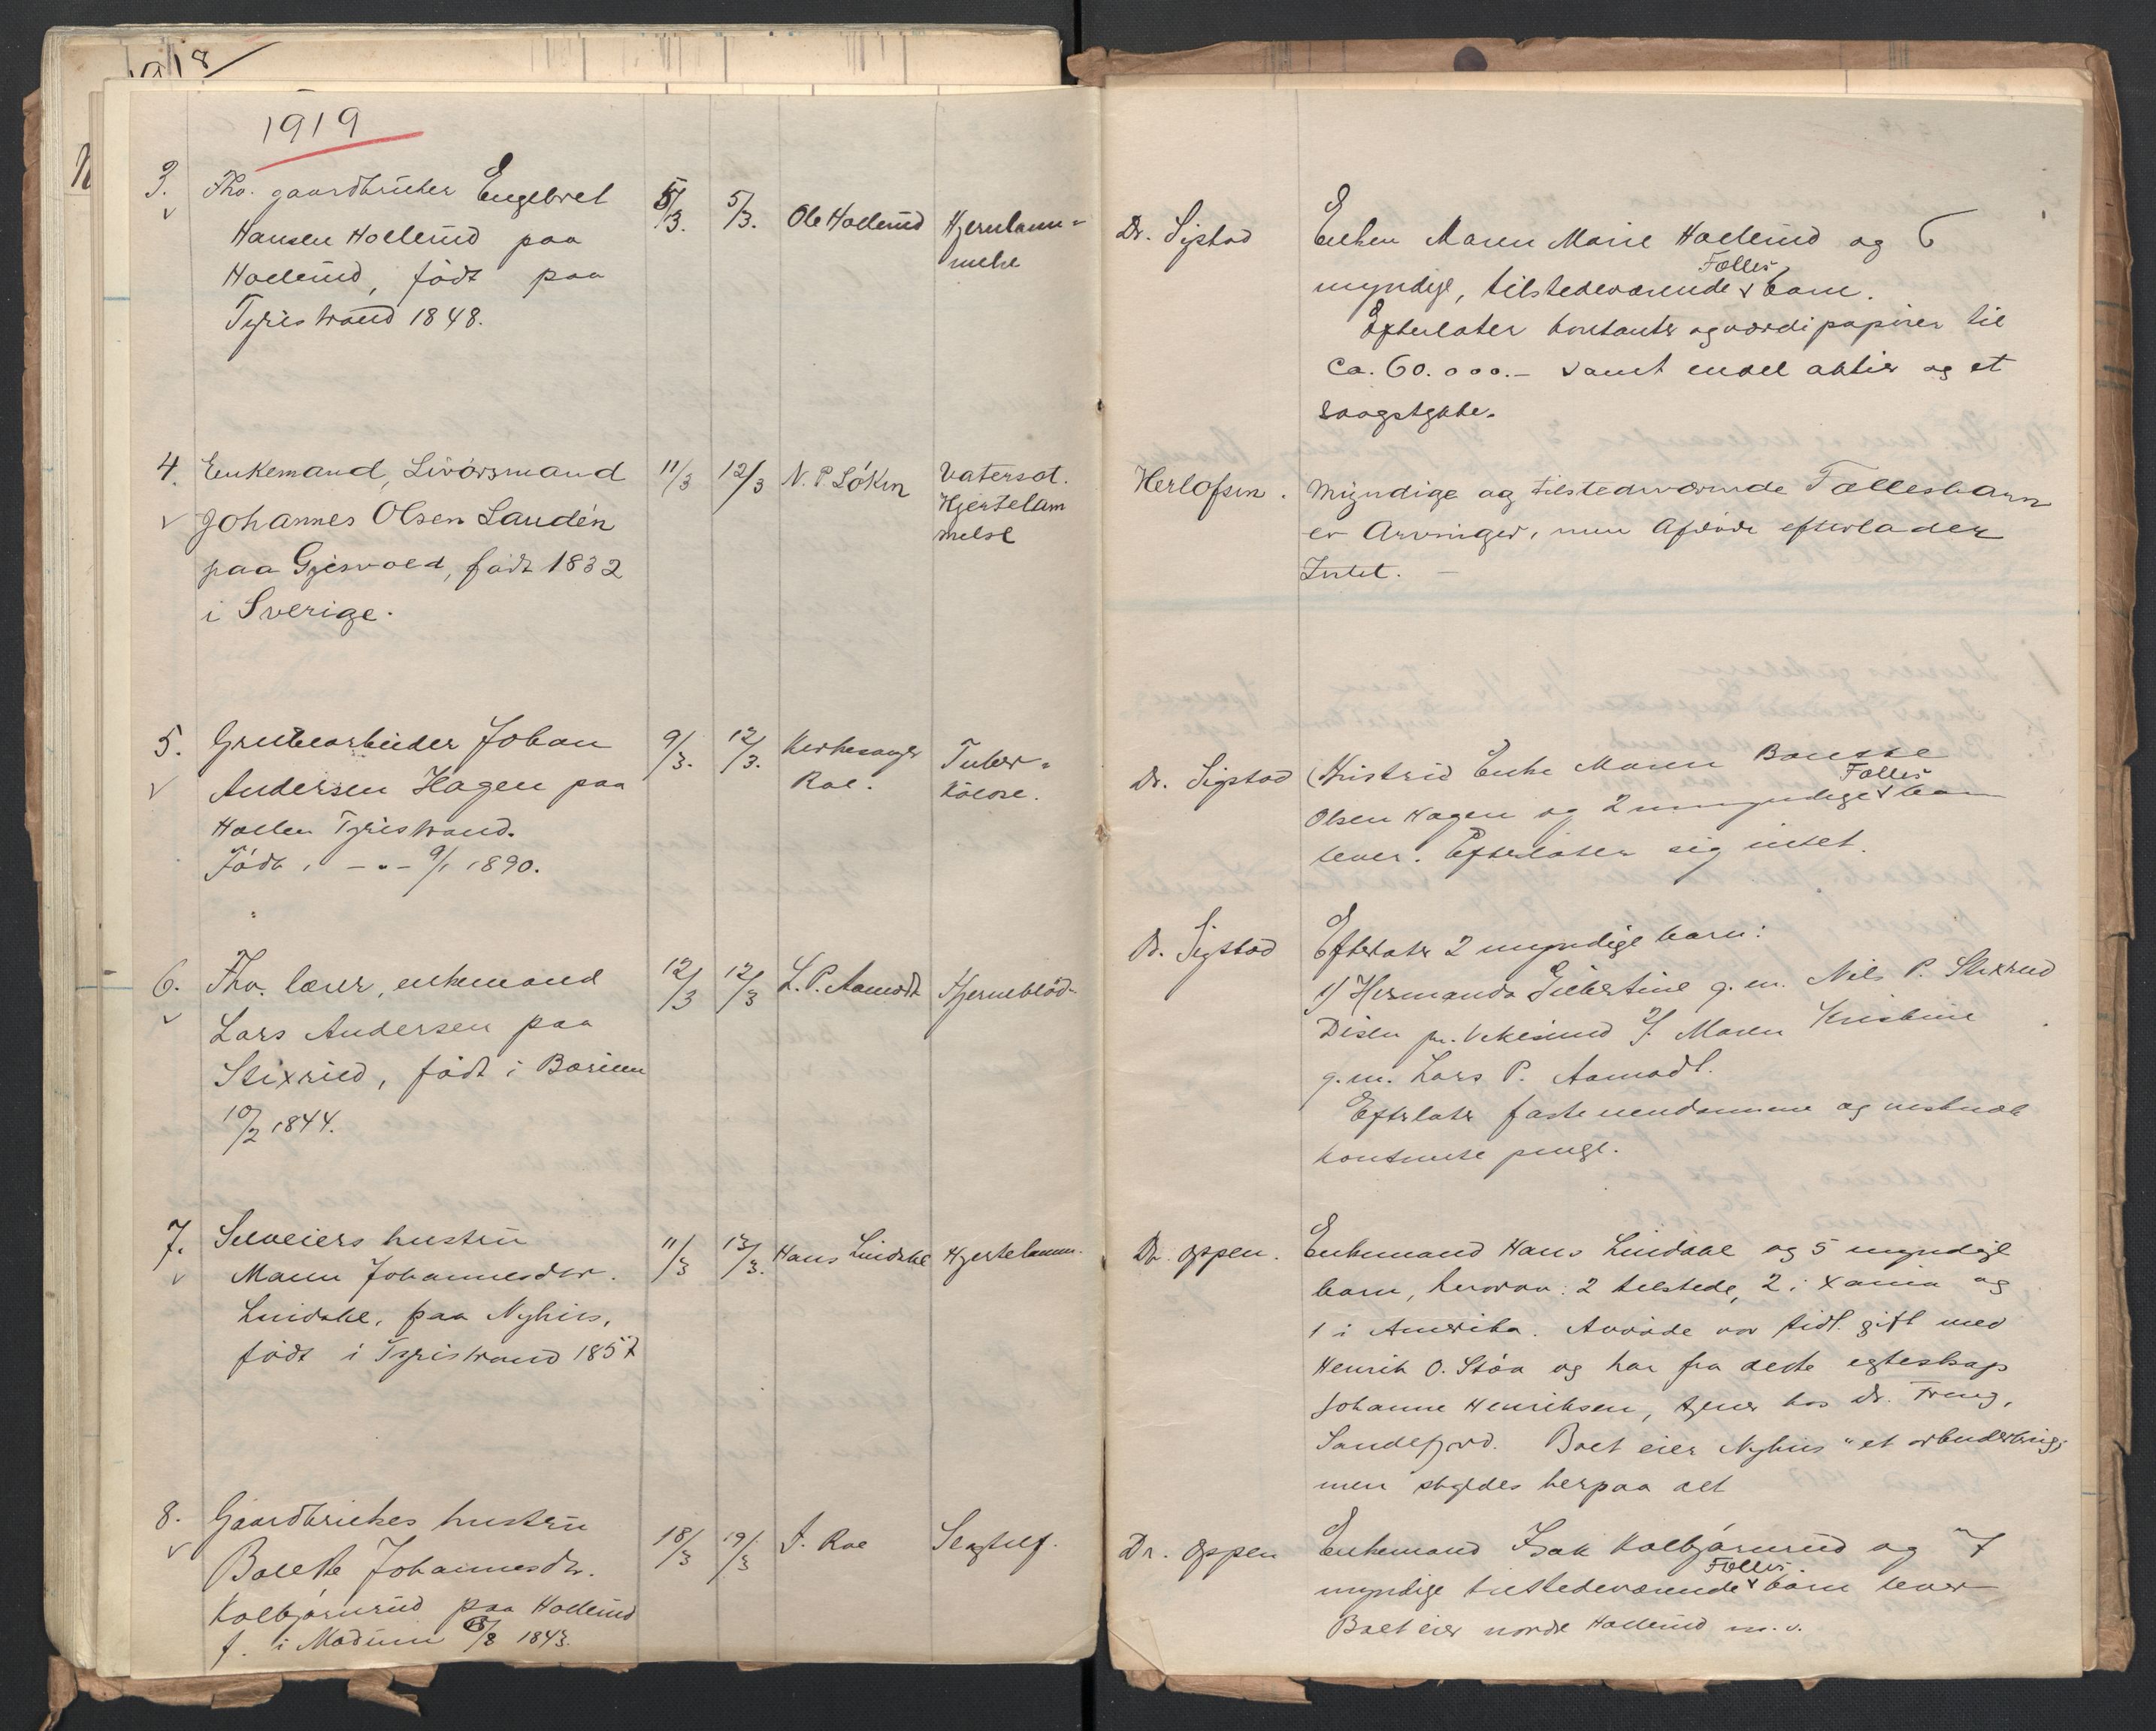 1918
1919
3. Fhv. gaardbruker Engebret
Hansen Hollerud paa
Hollerud, født paa
Tyristrand 1848.
5/3. 5/3. Ole Hollerud Hjernelam=
melse
Dr. Sigstad
Enken Maren Marie Hollerud og 6
myndige, tilstedeværende Fælles barn.
Efterlater kontanter og værdipapirer til
ca. 60.000.- samt endel aktier og et
saagstykke.
4. Enkemand, Livørsmand
Johannes Olsen Laudén
paa Gjesvold, født 1832
i Sverige.
11/3 12/3 N. P. Løken Vatersot.
Hjertelam
melse
Herlofsen.
Myndige og tilstedeværende Fællesbarn
er Arvinger, men Afdøde efterlader
Intet.
5. Grubearbeider Johan
Andersen Hagen paa
Hollen Tyristrand.
Født i -"- 9/1 1890.
9/3. 12/3. Kirkesanger
Roe.
Tuber=
kulose.
Dr. Sigstad
Enke Maren
Olsen Hagen og 2 umyndige Fælles barn
lever. Efterlater sig intet.
6. Fhv. lærer, enkemand
Lars Andersen paa
Stixrud, født i Bærum
10/2 1844.
12/3 12/3 L. P. Aamodt Hjerneblød-
Dr. Sigstad
Efterlater 2 myndige barn:
1) Hermanda Gilbertine g.m. Nils P. Stixrud
Disen pr. Vikersund 2. Maren Kristine
g.m. Lars P. Aamodt.
Efterlater faste eiendomme og
kontante penge.
7. Selveiers hustru
Maren Johannesdtr.
Lindahl, paa Nyhus,
født i Tyristrand 1857
11/3 13/3. Hans Lindahl Hjertelamm.
Dr. Oppen.
Enkemand Hans Lindahl og 5 myndige
barn, hvorav: 2 tilstede, 2 i Xania og
1 i Amerika. Avdøde var tidl. gift med
Henrik O. Støa og har fra dette egteskap
Johanne Henriksen, tjener hos Dr. Freng,
Sandefjord. Boet eier Nyhus" et arbeiderbruk,
men skyldes herpaa alt
8. Gaardbrukers hustru
Bolette Johannesdtr.
Kolbjørnrud paa Hollerud
f. i Modum /8 1843.
18/3 19/3 J. Roe Slagtilf.
Dr. Oppen
Enkemand Isak Kolbjørnrud og 7
myndige tilstedeværende Fælles barn lever
Boet eier nordre Hollerud m.v.